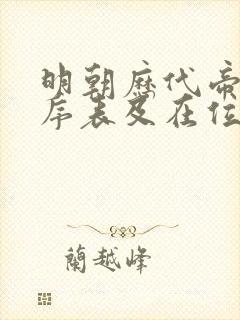 明朝历代帝
序表及在位
蘭越峰